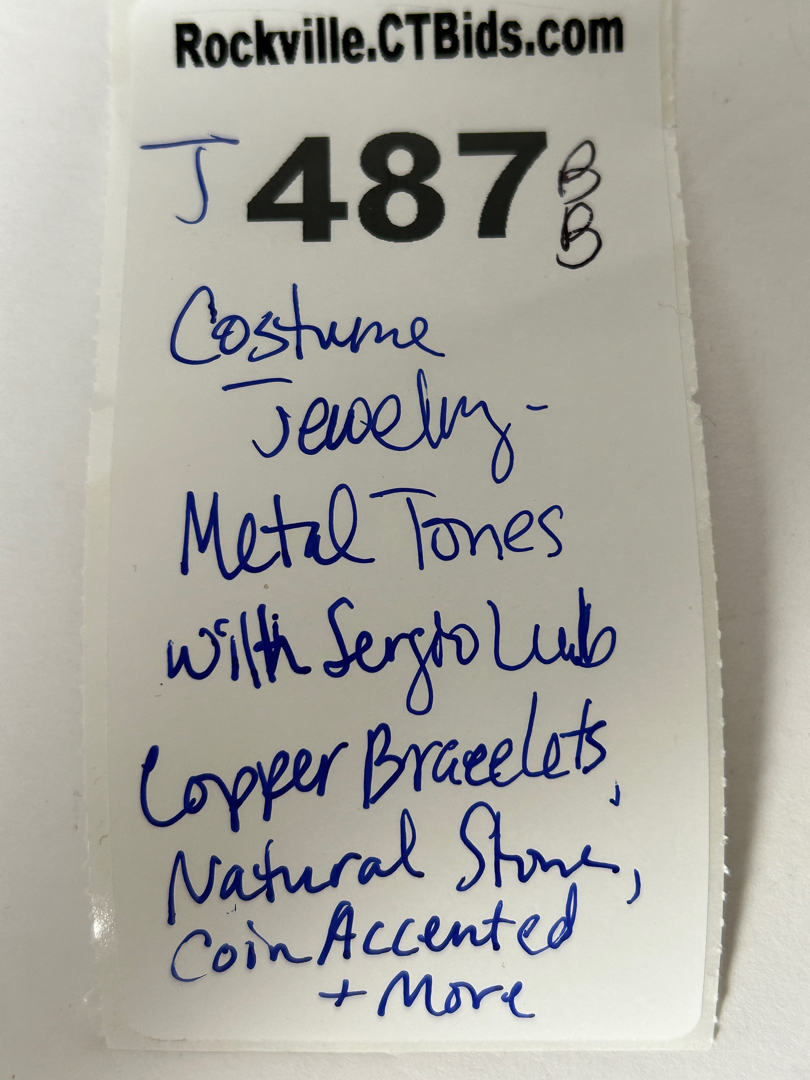 Rockville.CTBids.com
J 487 BB
Costume
Jewelry-
Metal Tones
with Sergio Lub
Copper Bracelets,
Natural Stone,
Coin Accented
+ More